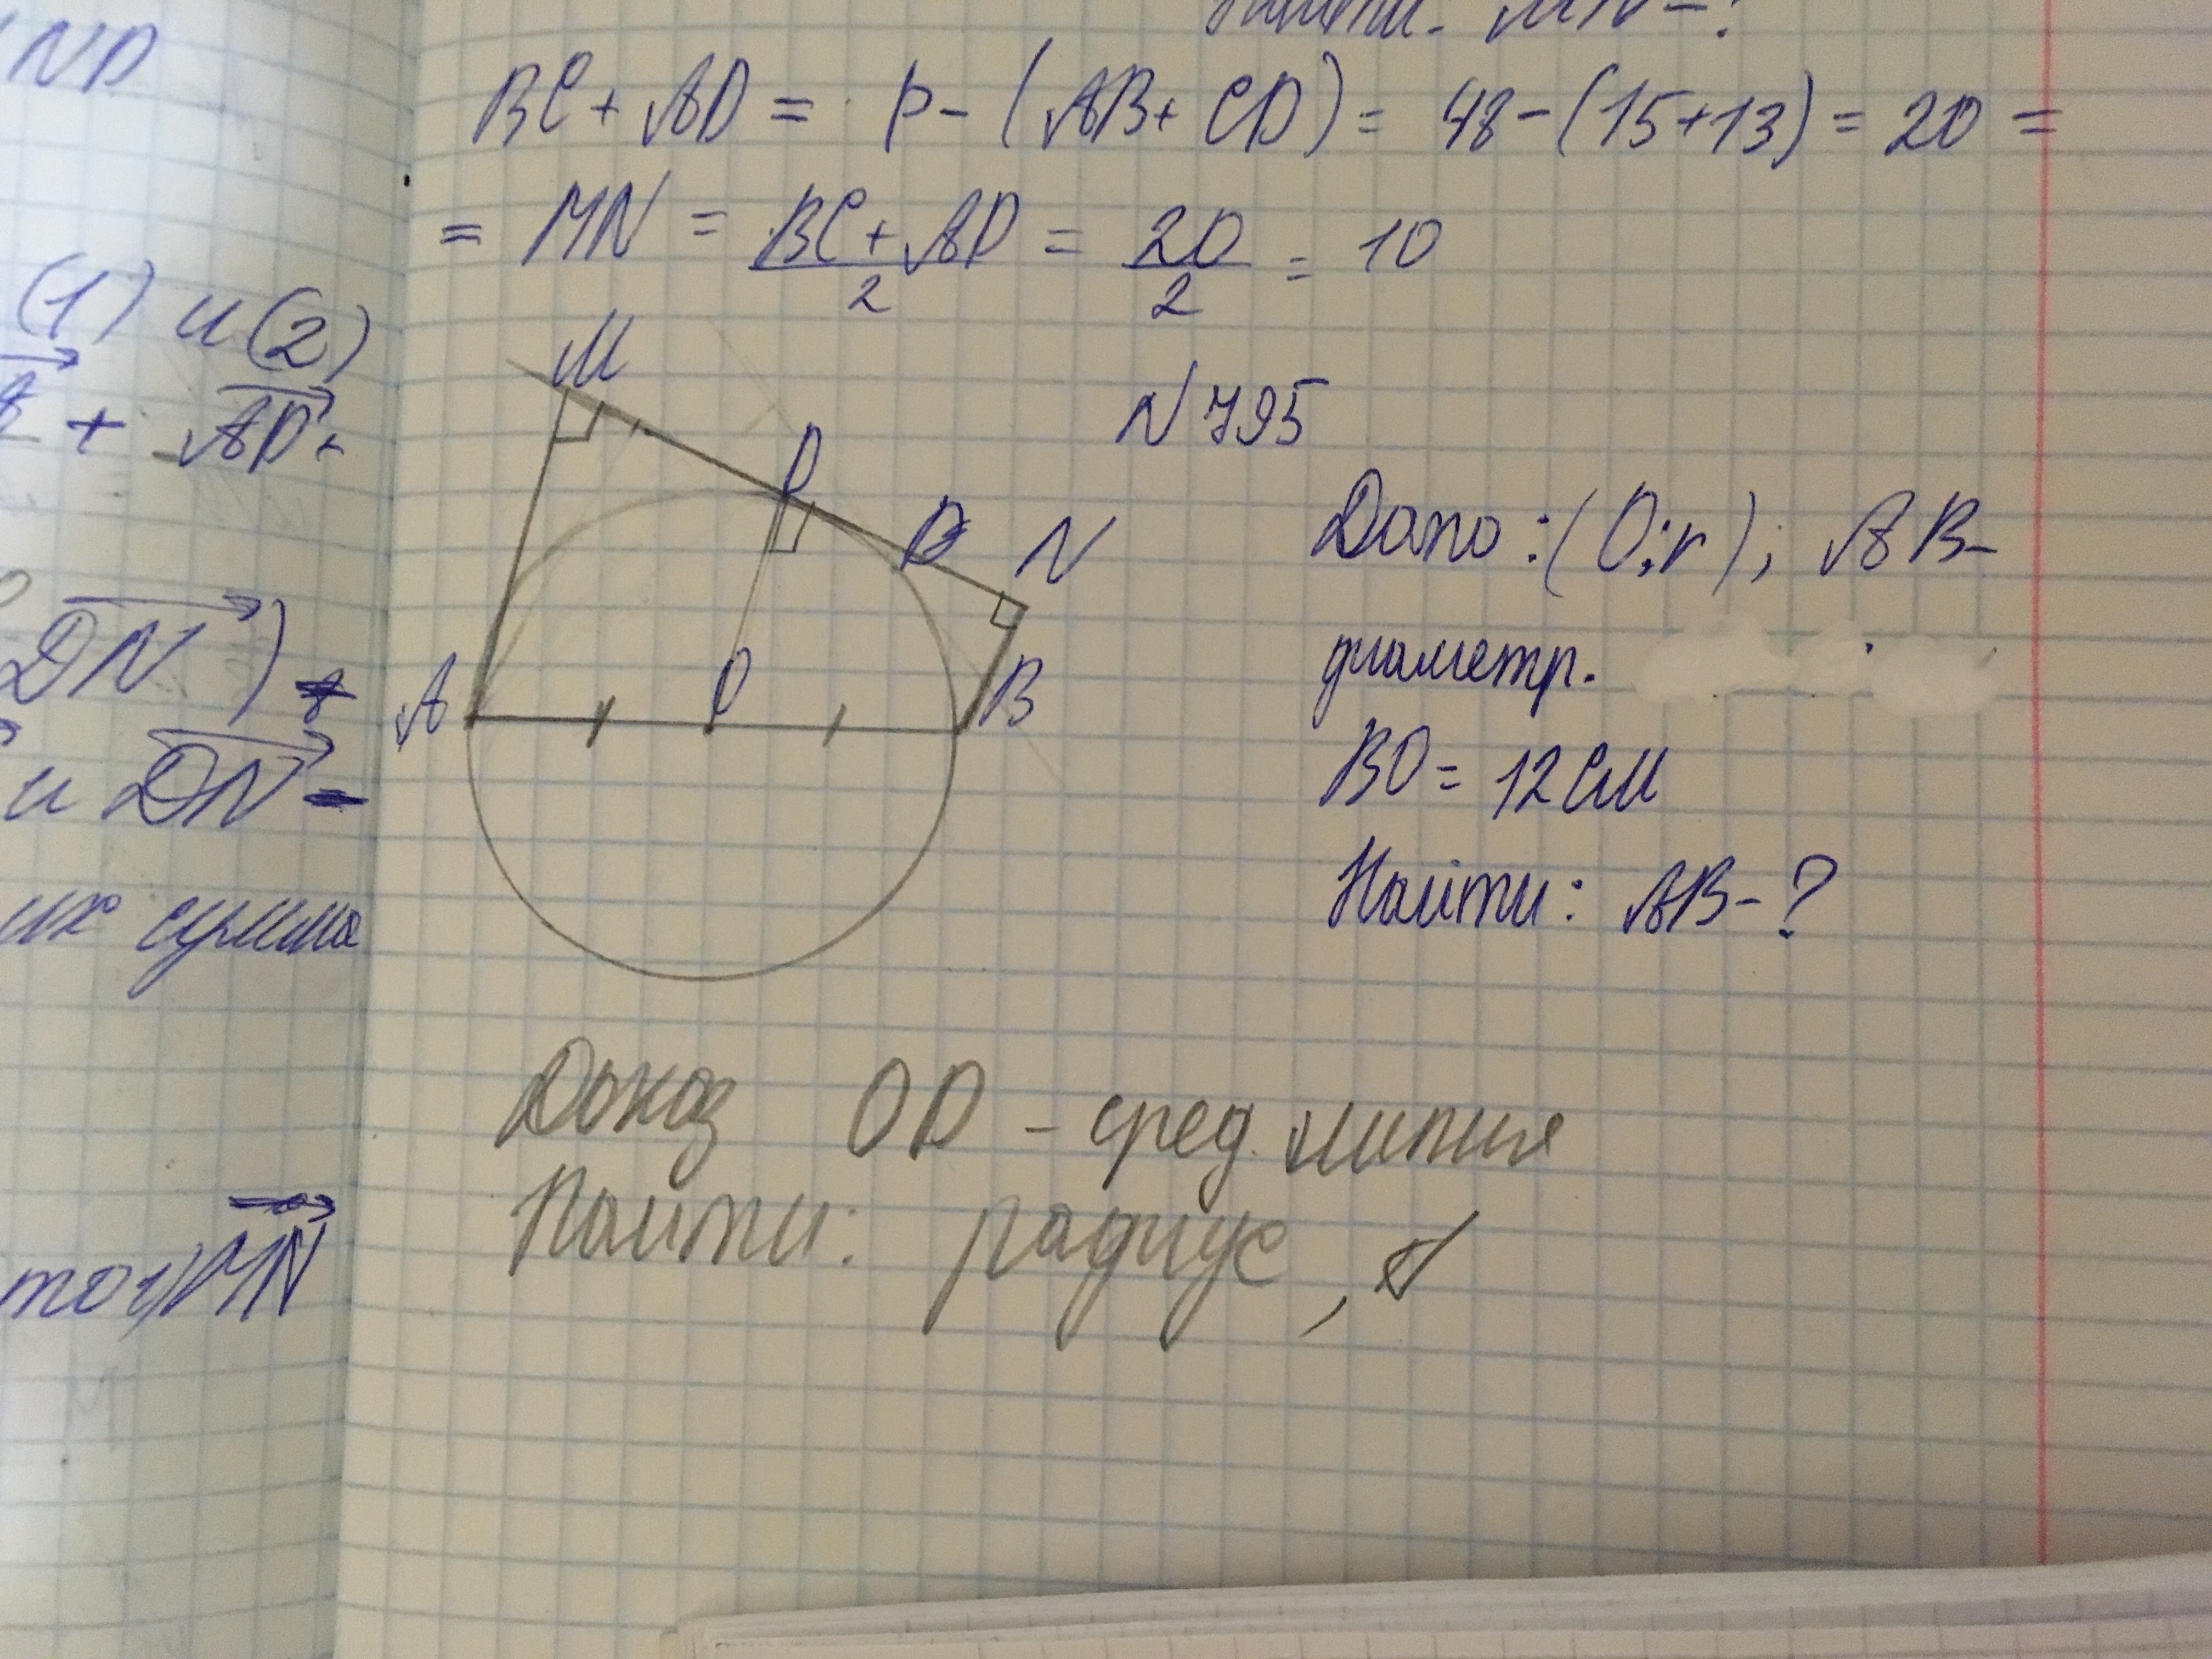 ND
(1) и (2)
+ AD
DN)
и DN -
их сумма
MN
Найти. MN - ?
BC + AD = P - (AB + CD) = 48 - (15 + 13) = 20 =
= MN = BC + AD / 2 = 20 / 2 = 10
N 795
M
D
N
A
O
B
Дано: (O; r); AB -
диаметр.
BO = 12 см
Найти: AB - ?
Доказ OD - сред. линия
Найти: радиус,